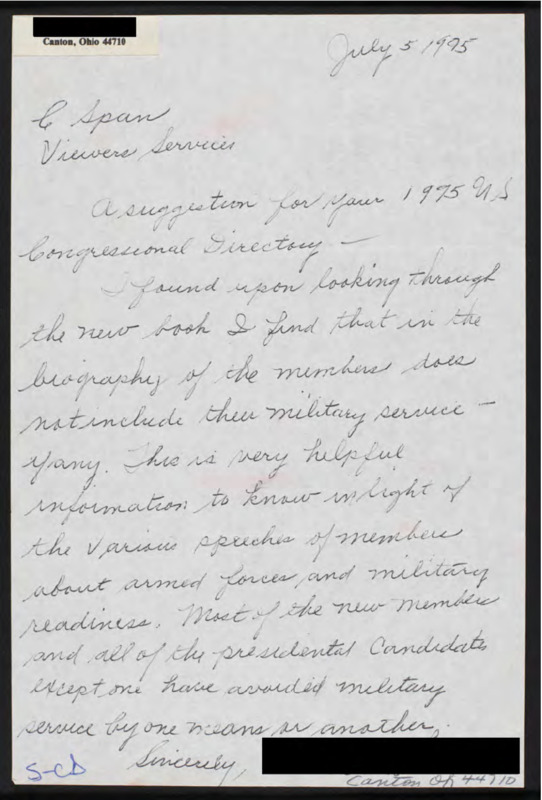 Canton, Ohio 44710
July 5 1995
C Span
Viewers Services
A suggestion for your 1995 US
Congressional Directory —
I found upon looking through
the new book I find that in the
biography of the members does
not include their military service —
if any. This is very helpful
information to know in light of
the various speeches of members
about armed forces and military
readiness. Most of the new members
and all of the presidental Candidates
except one have avoided military
service by one means or another.
Sincerely,
S-CD
Canton Oh 44710